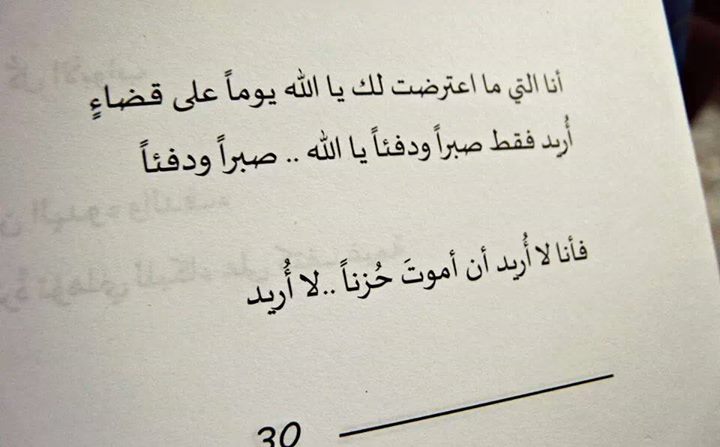 أنا التي ما اعترضت لك يا الله يوماً على قضاءٍ
أُريد فقط صبراً ودفئاً يا الله .. صبراً ودفئاً
فأنا لا أُريد أن أموتَ حُزناً ..لا أُريد
30